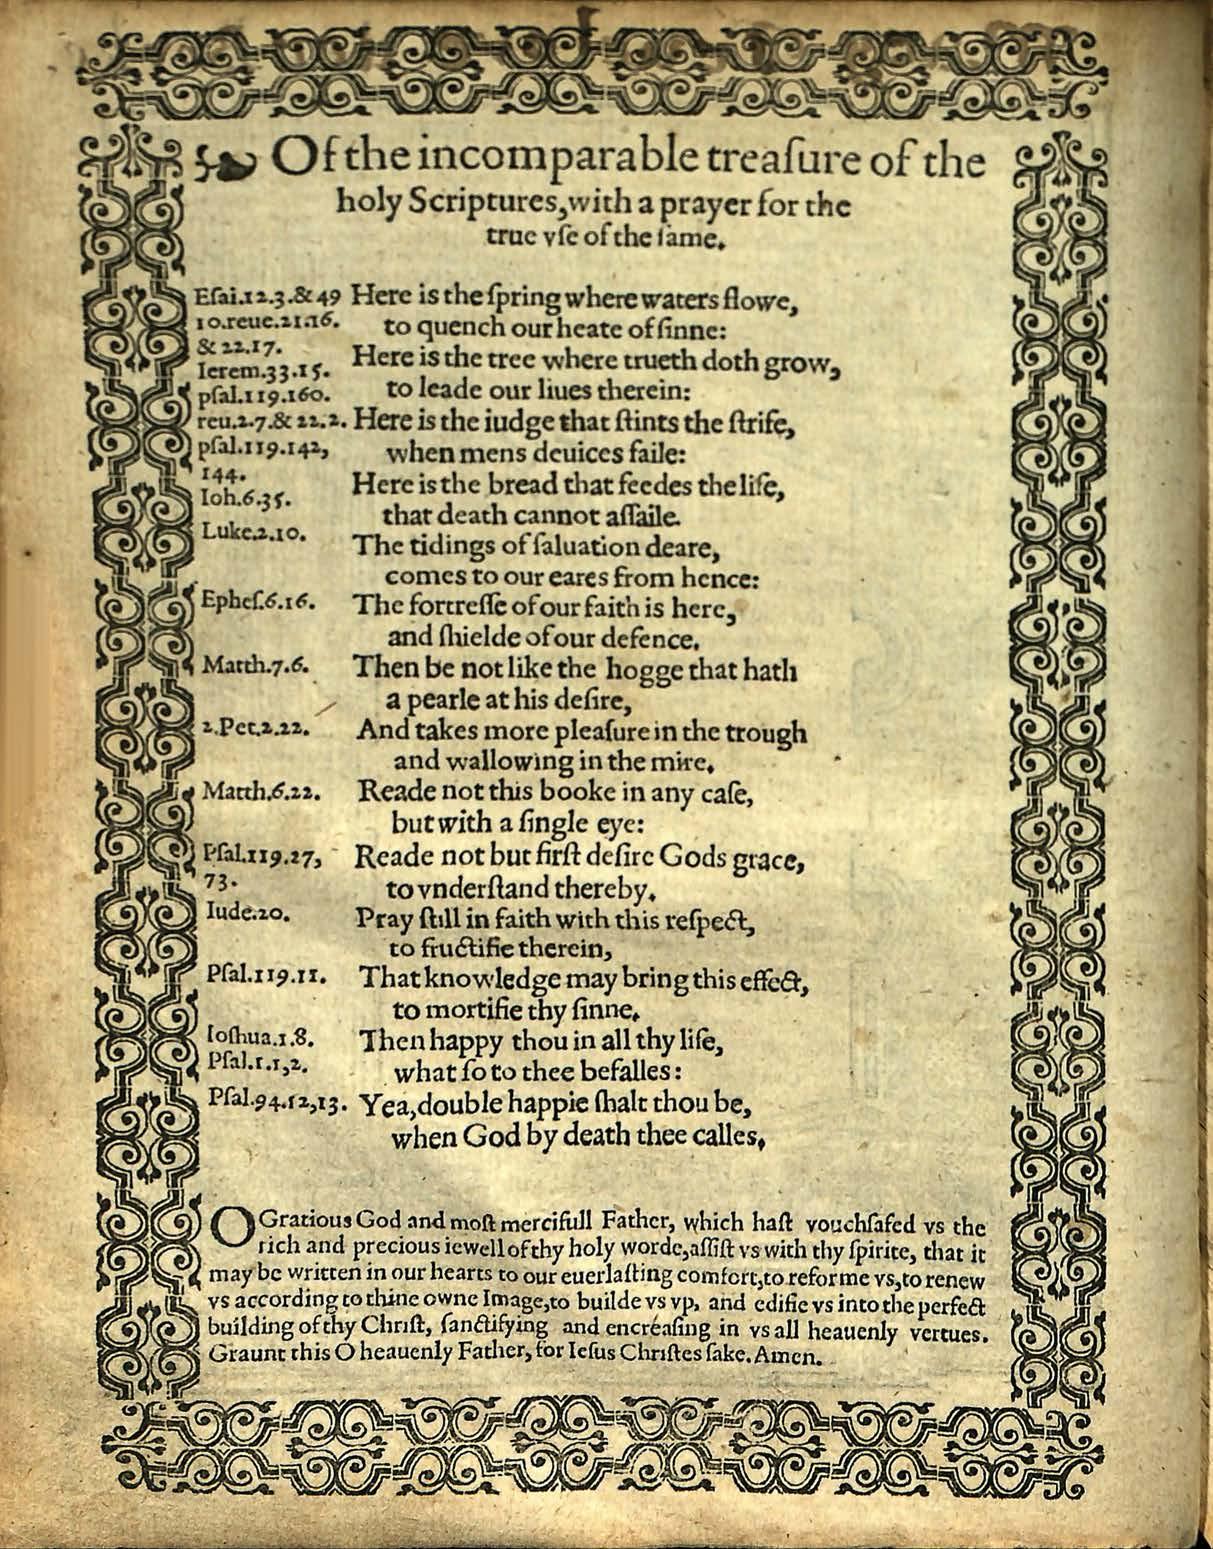 Of the incomparable treaſure of the
holy Scriptures,with a prayer for the
true vſe of the ſame.
Eſai.12.3.&49 Here is the ſpring where waters flowe,
10.reue.21.16. to quench our heate of ſinne:
& 22.17.
Ierem.33.15. Here is the tree where trueth doth grow,
pſal.119.160. to leade our liues therein:
reu.2.7.& 22.2. Here is the iudge that ſtints the ſtrife,
pſal.119.142, when mens deuices faile:
144.
Ioh.6.35. Here is the bread that feedes the life,
that death cannot aſſaile.
Luke.2.10. The tidings of ſaluation deare,
comes to our eares from hence:
Epheſ.6.16. The fortreſſe of our faith is here,
and ſhielde of our defence.
Matth.7.6. Then be not like the hogge that hath
a pearle at his deſire,
2.Pet.2.22. And takes more pleaſure in the trough
and wallowing in the mire.
Matth.6.22. Reade not this booke in any caſe,
but with a ſingle eye:
Pſal.119.27, Reade not but firſt deſire Gods grace,
73. to vnderſtand thereby.
Iude.20. Pray ſtill in faith with this reſpect,
to fructifie therein,
Pſal.119.11. That knowledge may bring this effect,
to mortifie thy ſinne.
Ioſhua.1.8. Then happy thou in all thy life,
Pſal.1.1,2. what ſo to thee befalles:
Pſal.94.12,13. Yea,double happie ſhalt thou be,
when God by death thee calles.
O Gratious God and moſt mercifull Father, which haſt vouchſafed vs the
rich and precious iewell of thy holy worde,aſſiſt vs with thy ſpirite, that it
may be written in our hearts to our euerlaſting comfort,to reforme vs,to renew
vs according to thine owne Image,to builde vs vp, and edifie vs into the perfect
building of thy Chriſt, ſanctifying and encréaſing in vs all heauenly vertues.
Graunt this O heauenly Father, for Ieſus Chriſtes ſake. Amen.